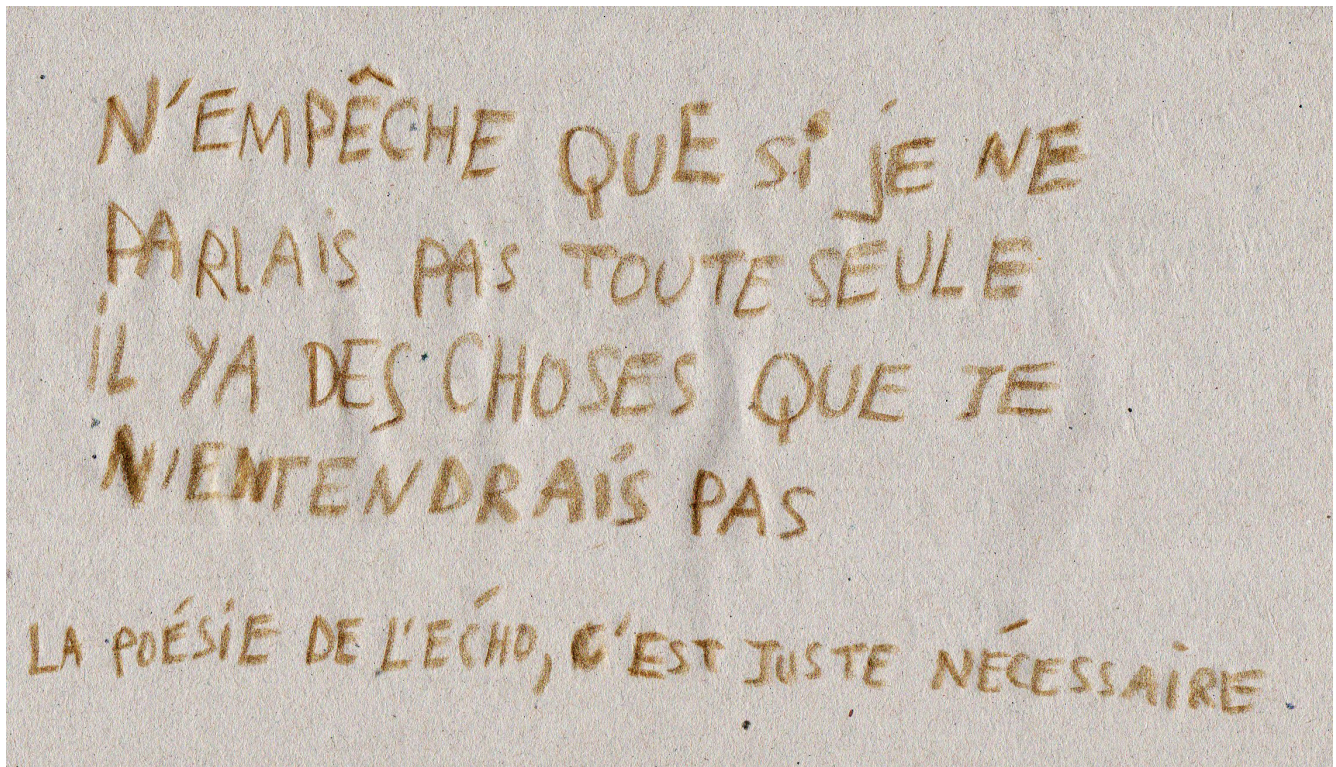 N'EMPÊCHE QUE Si jE NE
PARLAiS PAS TOUTE SEULE
iL YA DES CHOSES QUE JE
N'ENTENDRAiS PAS
LA POÉSiE DE L'ÉCHO, C'EST JUSTE NÉCESSAiRE